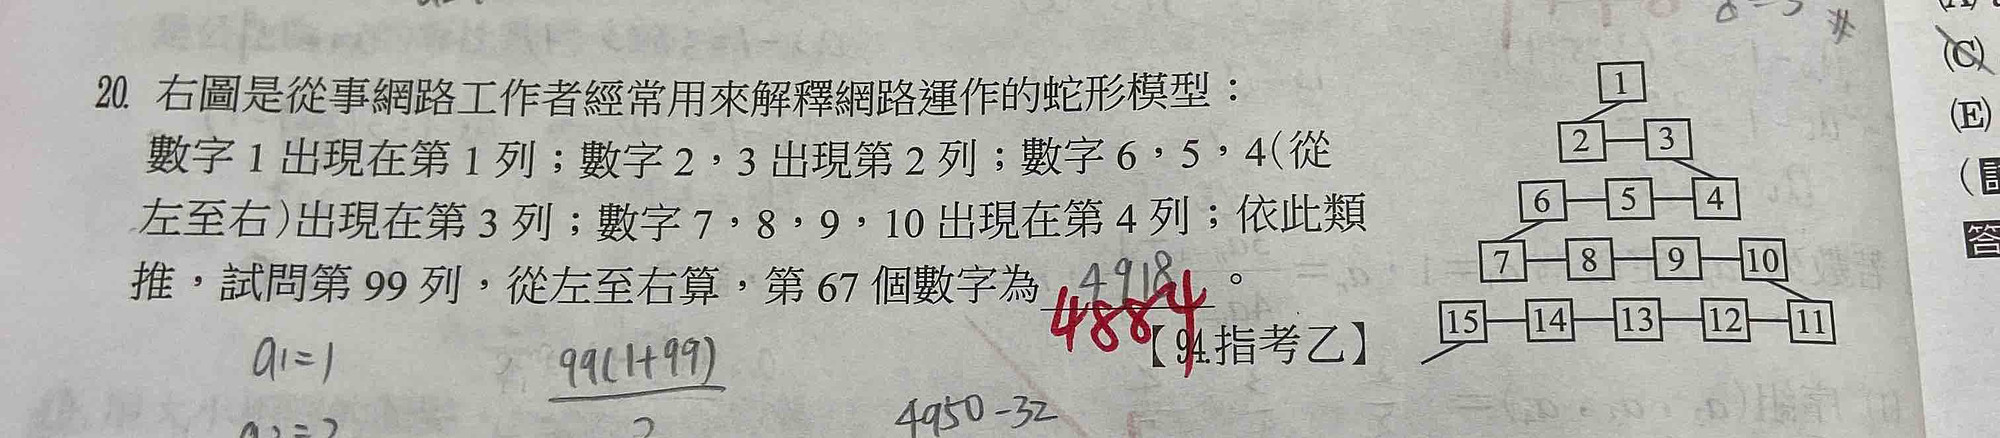 20. 右圖是從事網路工作者經常用來解釋網路運作的蛇形模型：
數字 1 出現在第 1 列；數字 2，3 出現第 2 列；數字 6，5，4(從
左至右)出現在第 3 列；數字 7，8，9，10 出現在第 4 列；依此類
推，試問第 99 列，從左至右算，第 67 個數字為 4918 。
4884
【94.指考乙】
1
2 3
6 5 4
7 8 9 10
15 14 13 12 11
a1=1
99(1+99)
2
4950-32
(C)
(E)
答